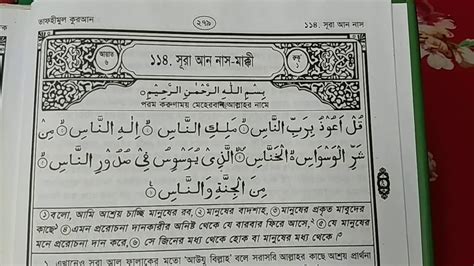 তাফহীমুল কুরআন
২৭৯
১১৪. সূরা আন নাস
আয়াত ৬
১১৪. সূরা আন নাস-মাক্কী
রুকূ ১
بِسْمِ اللّٰهِ الرَّحْمٰنِ الرَّحِيْمِ
পরম করুণাময় মেহেরবান আল্লাহর নামে
قُلْ اَعُوْذُ بِرَبِّ النَّاسِ ۙ مَلِكِ النَّاسِ ۙ اِلٰهِ النَّاسِ ۙ مِنْ
شَرِّ الْوَسْوَاسِ ۙ الْخَنَّاسِ ۙ الَّذِىْ يُوَسْوِسُ فِىْ صُدُوْرِ النَّاسِ ۙ
مِنَ الْجِنَّةِ وَالنَّاسِ
① বলো, আমি আশ্রয় চাচ্ছি মানুষের রব, ② মানুষের বাদশাহ, ③ মানুষের প্রকৃত মাবুদের
কাছে ④ এমন প্ররোচনা দানকারীর অনিষ্ট থেকে যে বারবার ফিরে আসে,২ ⑤ যে মানুষের
মনে প্ররোচনা দান করে, ⑥ সে জিনের মধ্য থেকে হোক বা মানুষের মধ্য থেকে।
১. এখানেও সূরা আল ফালাকের মতো 'আউযু বিল্লাহ' বলে সরাসরি আল্লাহর কাছে আশ্রয় প্রার্থনা